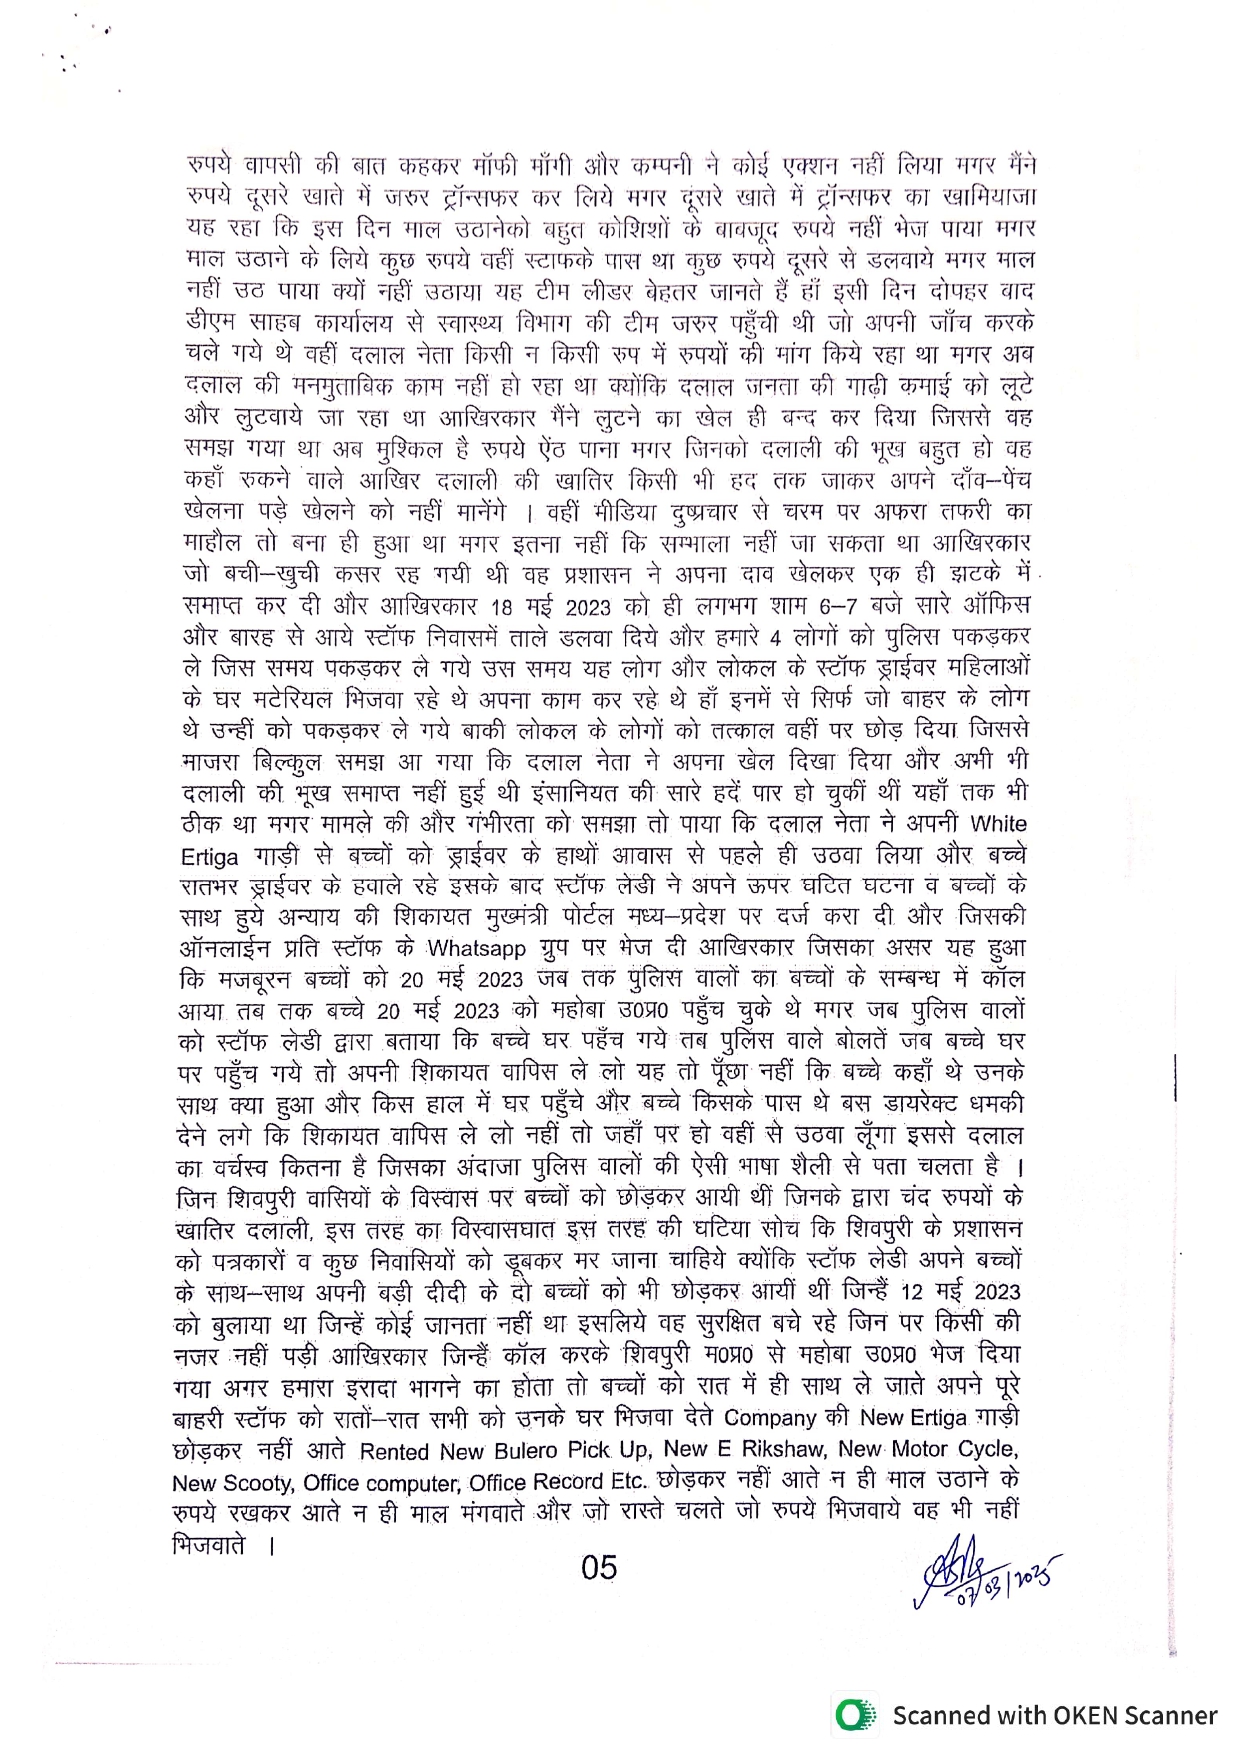 रुपये वापसी की बात कहकर मॉफी माँगी और कम्पनी ने कोई एक्शन नहीं लिया मगर मैंने
रुपये दूसरे खाते में जरुर ट्रॉन्सफर कर लिये मगर दूसरे खाते में ट्रॉन्सफर का खामियाजा
यह रहा कि इस दिन माल उठानेको बहुत कोशिशों के बावजूद रुपये नहीं भेज पाया मगर
माल उठाने के लिये कुछ रुपये वहीं स्टाफके पास था कुछ रुपये दूसरे से डलवाये मगर माल
नहीं उठ पाया क्यों नहीं उठाया यह टीम लीडर बेहतर जानते हैं हाँ इसी दिन दोपहर वाद
डीएम साहब कार्यालय से स्वास्थ्य विभाग की टीम जरुर पहुँची थी जो अपनी जाँच करके
चले गये थे वहीं दलाल नेता किसी न किसी रुप में रुपयों की मांग किये रहा था मगर अब
दलाल की मनमुताबिक काम नहीं हो रहा था क्योंकि दलाल जनता की गाढ़ी कमाई को लूटे
और लुटवाये जा रहा था आखिरकार मैंने लुटने का खेल ही बन्द कर दिया जिससे वह
समझ गया था अब मुश्किल है रुपये ऐंठ पाना मगर जिनको दलाली की भूख बहुत हो वह
कहाँ रुकने वाले आखिर दलाली की खातिर किसी भी हद तक जाकर अपने दाँव–पेंच
खेलना पड़े खेलने को नहीं मानेंगे । वहीं मीडिया दुष्प्रचार से चरम पर अफरा तफरी का
माहौल तो बना ही हुआ था मगर इतना नहीं कि सम्भाला नहीं जा सकता था आखिरकार
जो बची–खुची कसर रह गयी थी वह प्रशासन ने अपना दाव खेलकर एक ही झटके में
समाप्त कर दी और आखिरकार 18 मई 2023 को ही लगभग शाम 6–7 बजे सारे ऑफिस
और बारह से आये स्टॉफ निवासमें ताले डलवा दिये और हमारे 4 लोगों को पुलिस पकड़कर
ले जिस समय पकड़कर ले गये उस समय यह लोग और लोकल के स्टॉफ ड्राईवर महिलाओं
के घर मटेरियल भिजवा रहे थे अपना काम कर रहे थे हाँ इनमें से सिर्फ जो बाहर के लोग
थे उन्हीं को पकड़कर ले गये बाकी लोकल के लोगों को तत्काल वहीं पर छोड़ दिया जिससे
माजरा बिल्कुल समझ आ गया कि दलाल नेता ने अपना खेल दिखा दिया और अभी भी
दलाली की भूख समाप्त नहीं हुई थी इंसानियत की सारे हदें पार हो चुकीं थीं यहाँ तक भी
ठीक था मगर मामले की और गंभीरता को समझा तो पाया कि दलाल नेता ने अपनी White
Ertiga गाड़ी से बच्चों को ड्राईवर के हाथों आवास से पहले ही उठवा लिया और बच्चे
रातभर ड्राईवर के हवाले रहे इसके बाद स्टॉफ लेडी ने अपने ऊपर घटित घटना व बच्चों के
साथ हुये अन्याय की शिकायत मुख्मंत्री पोर्टल मध्य–प्रदेश पर दर्ज करा दी और जिसकी
ऑनलाईन प्रति स्टॉफ के Whatsapp ग्रुप पर भेज दी आखिरकार जिसका असर यह हुआ
कि मजबूरन बच्चों को 20 मई 2023 जब तक पुलिस वालों का बच्चों के सम्बन्ध में कॉल
आया तब तक बच्चे 20 मई 2023 को महोबा उ०प्र० पहुँच चुके थे मगर जब पुलिस वालों
को स्टॉफ लेडी द्वारा बताया कि बच्चे घर पहँच गये तब पुलिस वाले बोलतें जब बच्चे घर
पर पहुँच गये तो अपनी शिकायत वापिस ले लो यह तो पूँछा नहीं कि बच्चे कहाँ थे उनके
साथ क्या हुआ और किस हाल में घर पहुँचे और बच्चे किसके पास थे बस डायरेक्ट धमकी
देने लगे कि शिकायत वापिस ले लो नहीं तो जहाँ पर हो वहीं से उठवा लूँगा इससे दलाल
का वर्चस्व कितना है जिसका अंदाजा पुलिस वालों की ऐसी भाषा शैली से पता चलता है ।
जिन शिवपुरी वासियों के विस्वास पर बच्चों को छोड़कर आयी थीं जिनके द्वारा चंद रुपयों के
खातिर दलाली, इस तरह का विस्वासघात इस तरह की घटिया सोच कि शिवपुरी के प्रशासन
को पत्रकारों व कुछ निवासियों को डूबकर मर जाना चाहिये क्योंकि स्टॉफ लेडी अपने बच्चों
के साथ–साथ अपनी बड़ी दीदी के दो बच्चों को भी छोड़कर आयीं थीं जिन्हैं 12 मई 2023
को बुलाया था जिन्हें कोई जानता नहीं था इसलिये वह सुरक्षित बचे रहे जिन पर किसी की
नजर नहीं पड़ी आखिरकार जिन्हैं कॉल करके शिवपुरी म०प्र० से महोबा उ०प्र० भेज दिया
गया अगर हमारा इरादा भागने का होता तो बच्चों को रात में ही साथ ले जाते अपने पूरे
बाहरी स्टॉफ को रातों–रात सभी को उनके घर भिजवा देते Company की New Ertiga गाड़ी
छोड़कर नहीं आते Rented New Bulero Pick Up, New E Rikshaw, New Motor Cycle,
New Scooty, Office computer, Office Record Etc. छोड़कर नहीं आते न ही माल उठाने के
रुपये रखकर आते न ही माल मंगवाते और जो रास्ते चलते जो रुपये भिजवाये वह भी नहीं
भिजवाते ।
05
07/03/2025
Scanned with OKEN Scanner